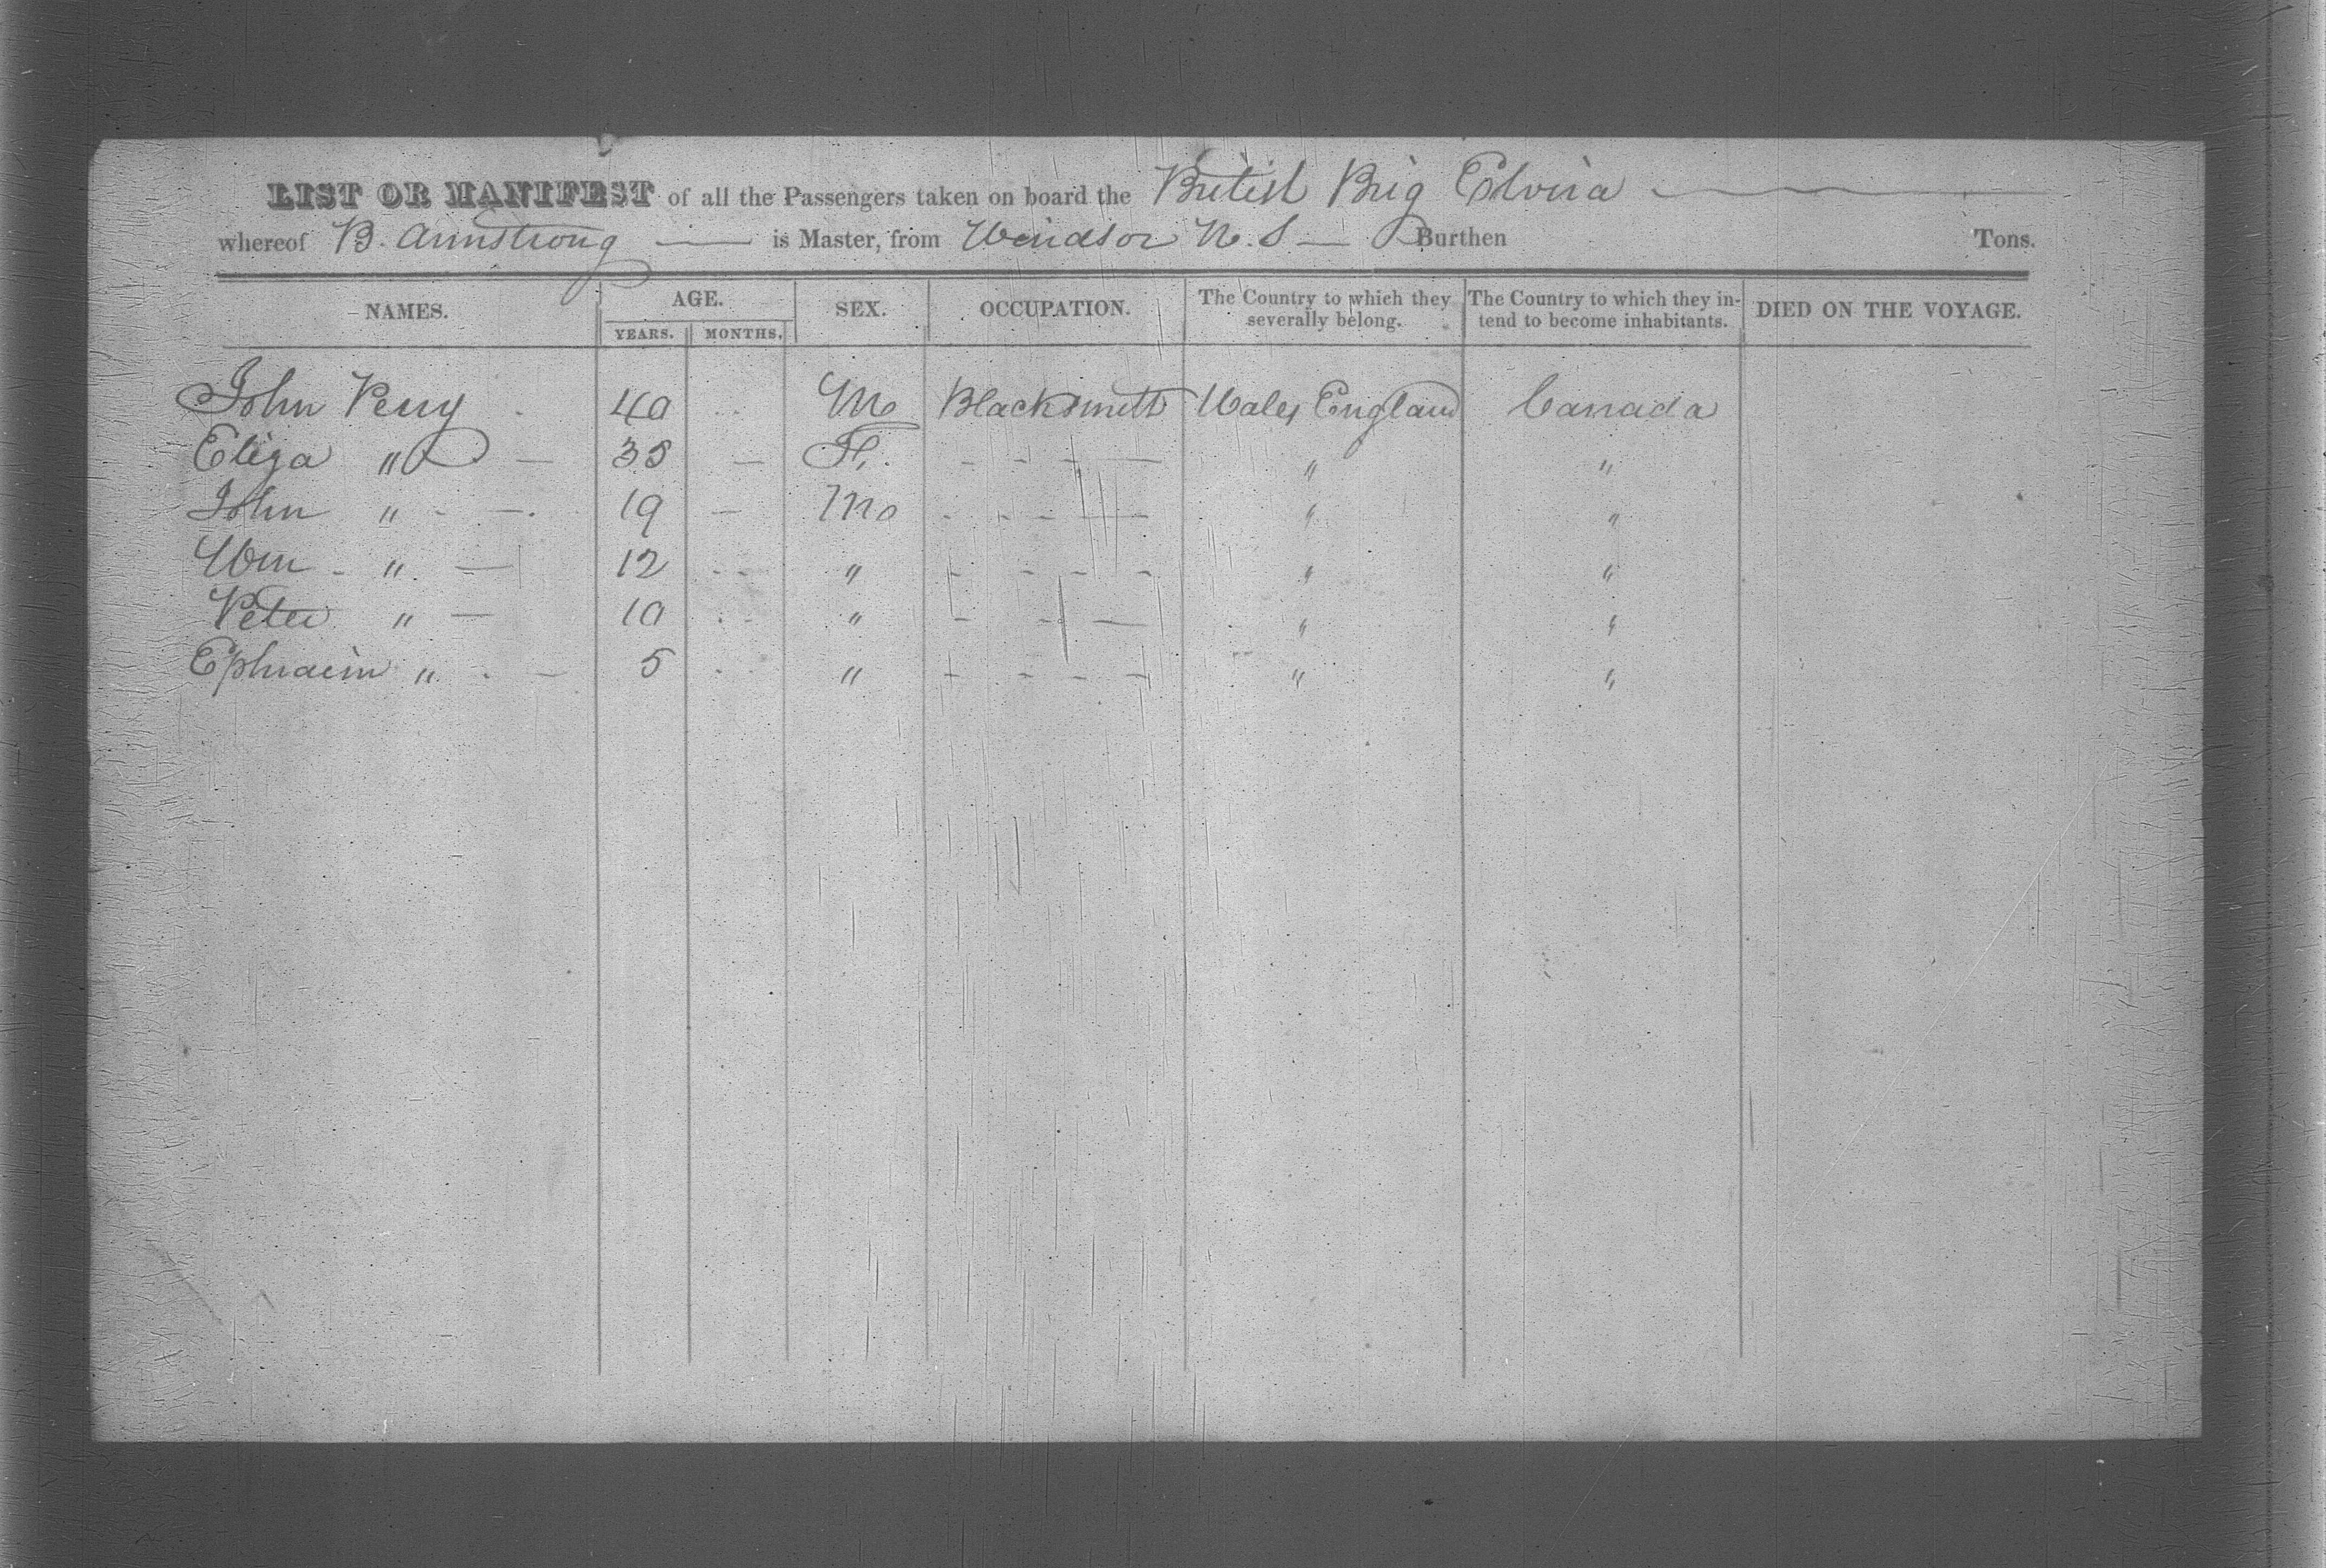 LIST OR MANIFEST of all the Passengers taken on board the British Brig Elvira
whereof B. Armstrong is Master, from Windsor N. S Burthen Tons.
NAMES. AGE. SEX. OCCUPATION. The Country to which they severally belong. The Country to which they intend to become inhabitants. DIED ON THE VOYAGE.
YEARS. MONTHS.
John Perry 40 M Blacksmith Wales England Canada
Eliza " 38 F. " "
John " 19 M " "
Wm " 12 " " "
Peter " 10 " " "
Ephraim " 5 " " "